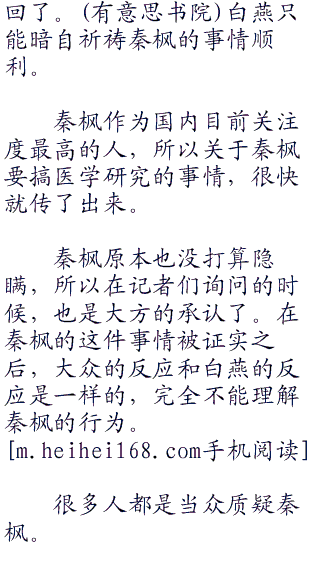 回了。(有意思书院)白燕只
能暗自祈祷秦枫的事情顺
利。
秦枫作为国内目前关注
度最高的人，所以关于秦枫
要搞医学研究的事情，很快
就传了出来。
秦枫原本也没打算隐
瞒，所以在记者们询问的时
候，也是大方的承认了。在
秦枫的这件事情被证实之
后，大众的反应和白燕的反
应是一样的，完全不能理解
秦枫的行为。
[m.heihei168.com手机阅读]
很多人都是当众质疑秦
枫。